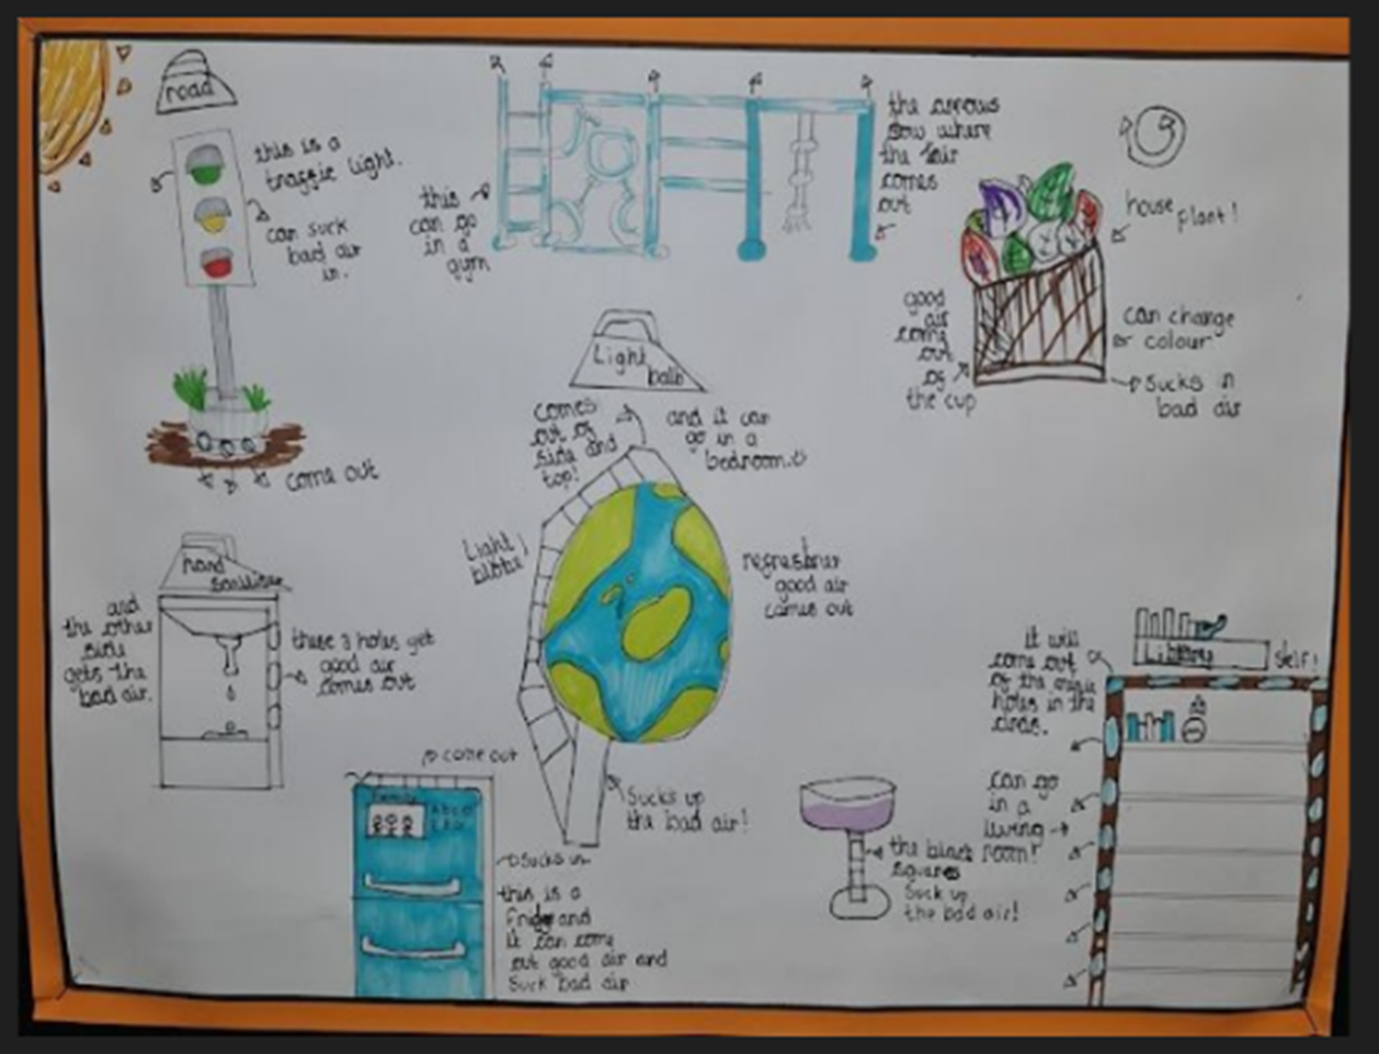 road
this is a
traggic light.
can suck
bad air
in.
come out
this
can go
in a
gym
the arrows
sow where
the air
comes
out
house plant!
good
air
come
out
of
the cup
can change
colour
Sucks in
bad air
Light
balb
comes
out of
side and
top!
and it can
go in a
bedroom.
Light
good air
comes out
Sucks up
the bad air!
hand
Sanitiser
and
the other
side
gets the
bad air.
these 3 holes get
good air
comes out
come out
Family
Sucks in
this is a
Fridge and
it can come
out good air and
Suck bad air
the black
squares
Suck up
the bad air!
Library
Shelf!
it will
come out
of the
holes in the
can go
in a
living
room!